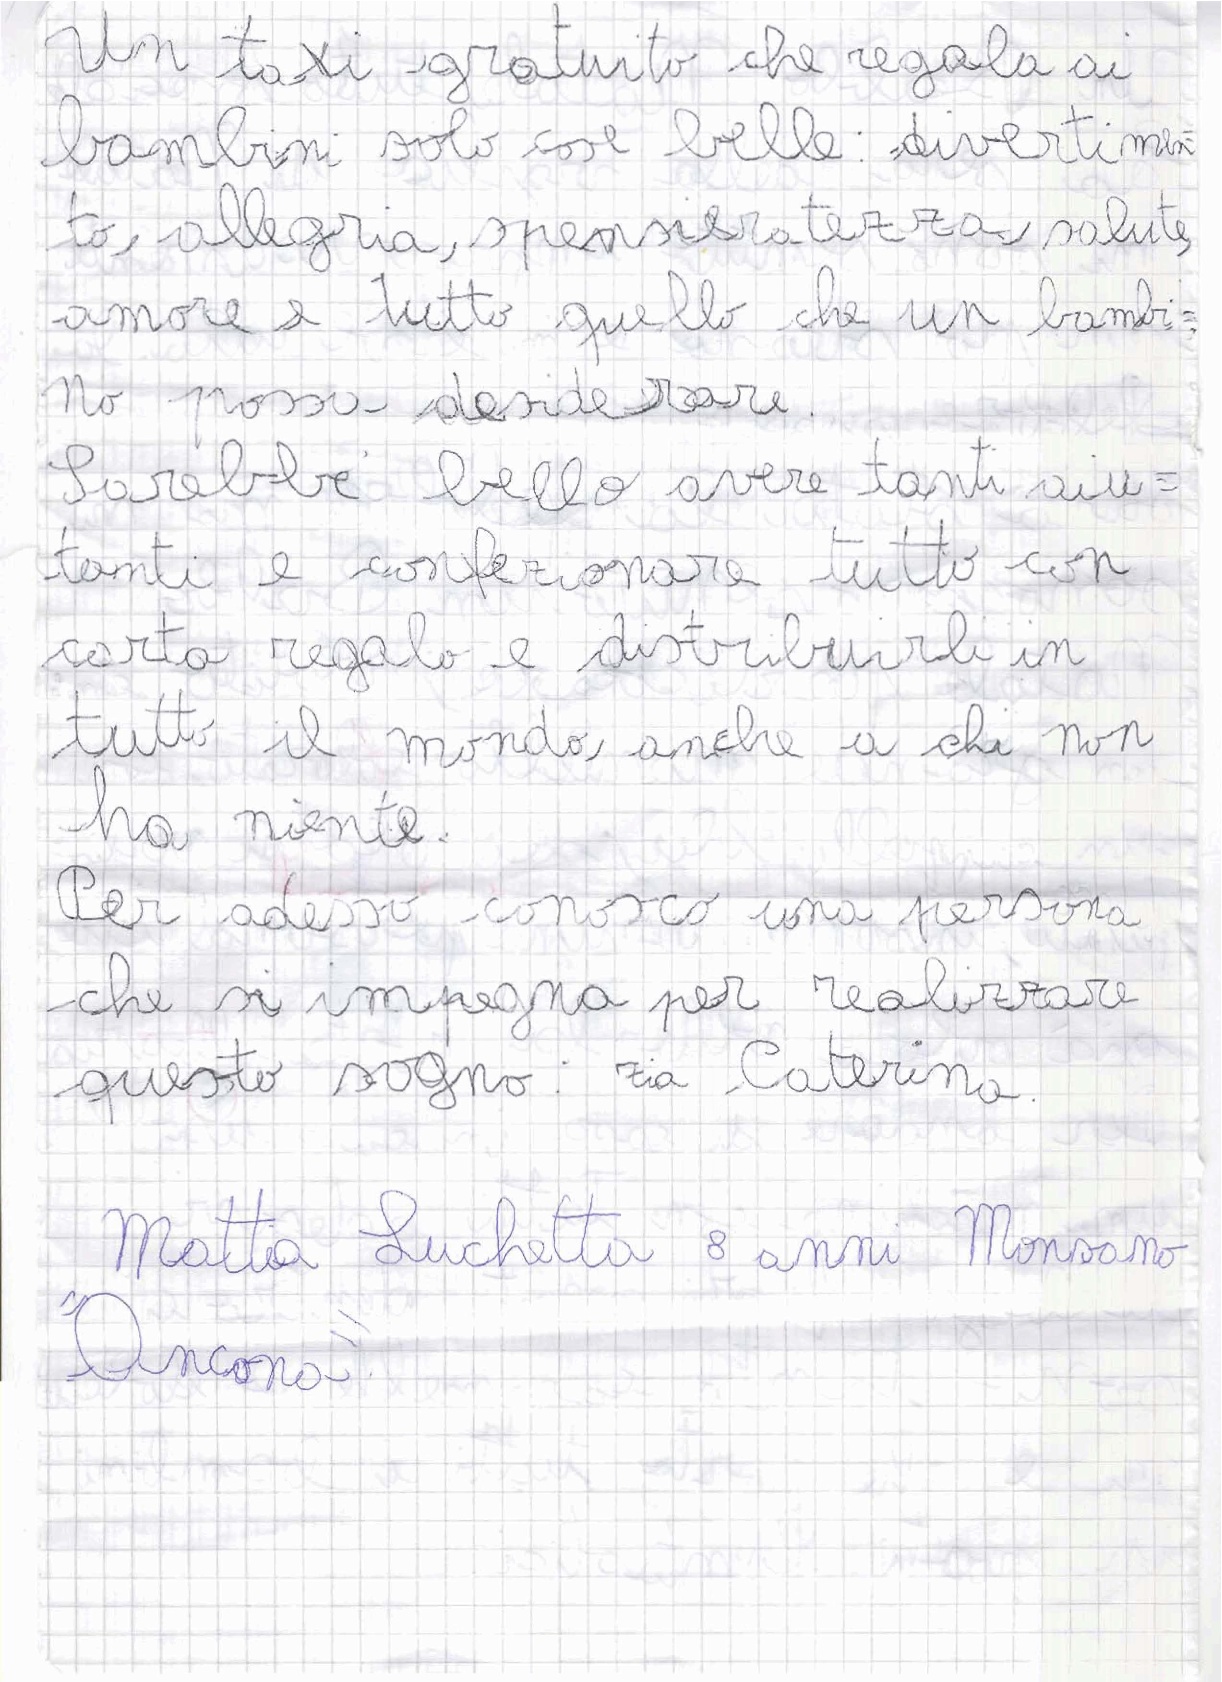 Un taxi gratuito che regala ai
bambini solo cose belle: divertimen=
to, allegria, spensieratezza, salute,
amore e tutto quello che un bambi=
no possa desiderare.
Sarebbe bello avere tanti aiu=
tanti e confezionare tutto con
carta regalo e distribuirli in
tutto il mondo, anche a chi non
ha niente.
Per adesso conosco una persona
che si impegna per realizzare
questo sogno: zia Caterina.
Mattia Luchetta 8 anni Monsano
"Ancona".